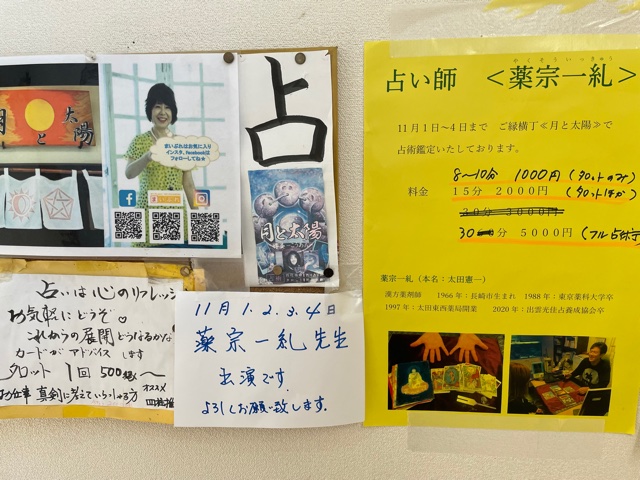 月と太陽
まいぷれはお気に入り
インスタ、Facebookは
フォローしてね★
まいぷれ
占
月と太陽
占いは心のリフレッシ
お気軽にどうぞ♡
これからの展開どうなるかな
カードがアドバイスします
タロット 1回 500円〜
お仕事真剣に考えていらっしゃる方
オススメ
11月1.2.3.4日
薬宗一糺先生
出演です。
よろしくお願い致します。
占い師 ≪薬宗一糺≫
やくそういっきゅう
11月1日~4日まで ご縁横丁≪月と太陽≫で
占術鑑定いたしております。
8〜10分 1000円(タロットのみ)
料金 15分 2000円(タロットほか)
30分 3000円
30分 5000円(フル占術)
薬宗一糺(本名:太田憲一)
漢方薬剤師 1966年:長崎市生まれ 1988年:東京薬科大学卒
1997年:太田東西薬局開業 2020年:出雲光住占養成協会卒